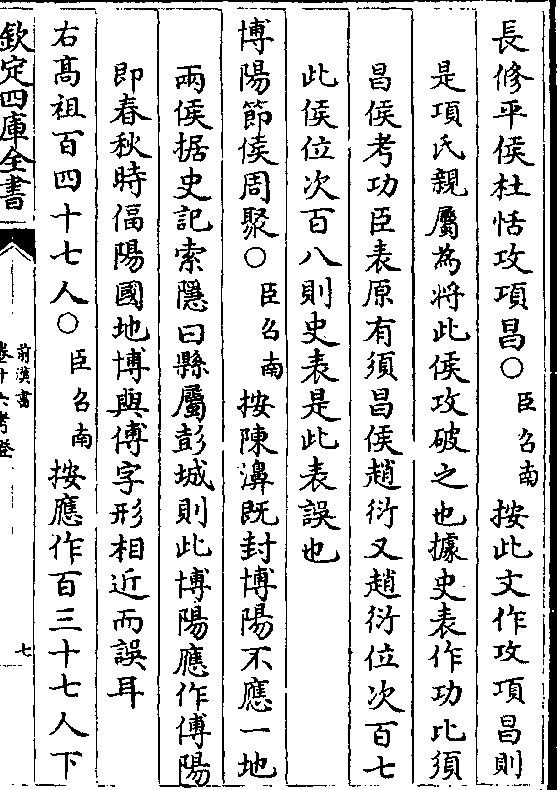 長修平侯杜恬攻項昌○臣召南按此文作攻項昌則
是項氏親屬為將此侯攻破之也據史表作功比須
昌侯考功臣表原有須昌侯趙衍又趙衍位次百七
此侯位次百八則史表是此表誤也
博陽節侯周聚○臣召南按陳濞既封博陽不應一地
兩侯据史記索隱曰縣屬彭城則此博陽應作傅陽
即春秋時偪陽國地博與傅字形相近而誤耳
右高祖百四十七人○臣召南按應作百三十七人下
欽定四庫全書
前漢書
卷十六考證
七